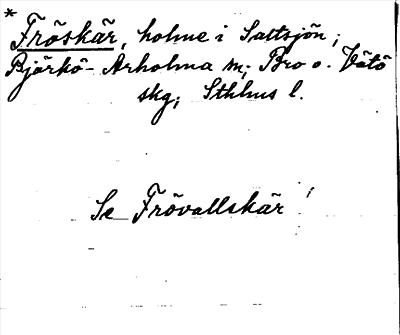 *
Fröskär, holme i Saltsjön;
Björkö-Arholma sn; Bro o. Vätö
skg; Sthlms l.
Se Frövallskär!